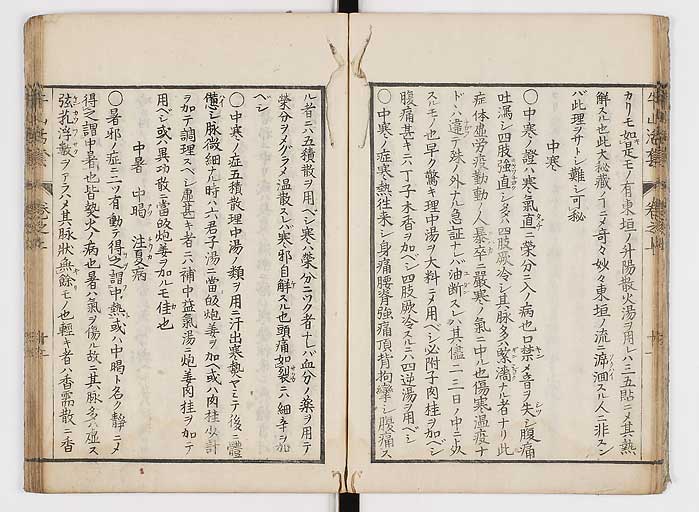 カリモ如是モノ有東垣ノ升陽散火湯ヲ用レハ三五貼ニメ其熱
解スル也此大秘蔵ノ一ニメ奇々妙々東垣ノ流ニ遡洄スル人ニ非スン
ハ此理ヲサトシ難シ可秘
中寒
〇中寒ノ證ハ寒氣直ニ榮分ニ入ノ病也口禁メ音ヲ失シ腹痛
吐瀉シ四肢強直シ多ハ四肢厥冷シ其脉多ハ緊濇ナル者ナリ此
症体虚労疫勤動ノ人暴卒ニ嚴寒ノ氣ニ中ル也傷寒温疫ナ
ドヽハ違テ殊ノ外ナル急証ナレハ油断スレハ其儘二三日ノ中ニ死
スルモノ也早ク驚キ理中湯ヲ大料ニメ用ベシ必附子肉桂ヲ加ベシ
腹痛甚キニハ丁子木香ヲ加ベシ四肢厥冷スルニハ四逆湯ヲ用ベシ
〇中寒ノ症寒熱往来シ身痛腰脊強痛頂背拘攣シ腹痛ス
ル者ニハ五積散ヲ用ベシ寒ハ榮分ニツク者ナレハ血分ノ薬ヲ用テ
榮分ヲクツラメ温散スレハ寒邪自解スル也頭痛如裂ニハ細辛ヲ加
ベシ
〇中寒ノ症五積散理中湯ノ類ヲ用ニ汗出寒熱ヤミテ後一體
憊シ脉微細ナル時ハ六君子湯ニ當皈炮姜ヲ加ベ或ハ肉桂少計
ヲ加テ調理スベシ虚甚キ者ニハ補中益氣湯ニ炮姜肉桂ヲ加テ
用ベシ或ハ異功散ニ當皈炮姜ヲ加ルモ佳也
中暑 中暍 注夏病
〇暑邪ノ症ニツ有動テ得之謂中熱或ハ中暍ト名ク靜ニメ
得之謂中暑也皆熒火ノ病也暑ハ氣ヲ傷ル故ニ其脉多ハ虚ス
弦芤浮散ヲアラハメ其脉状無餘モノ也輕キ者ハ香薷散ニ香